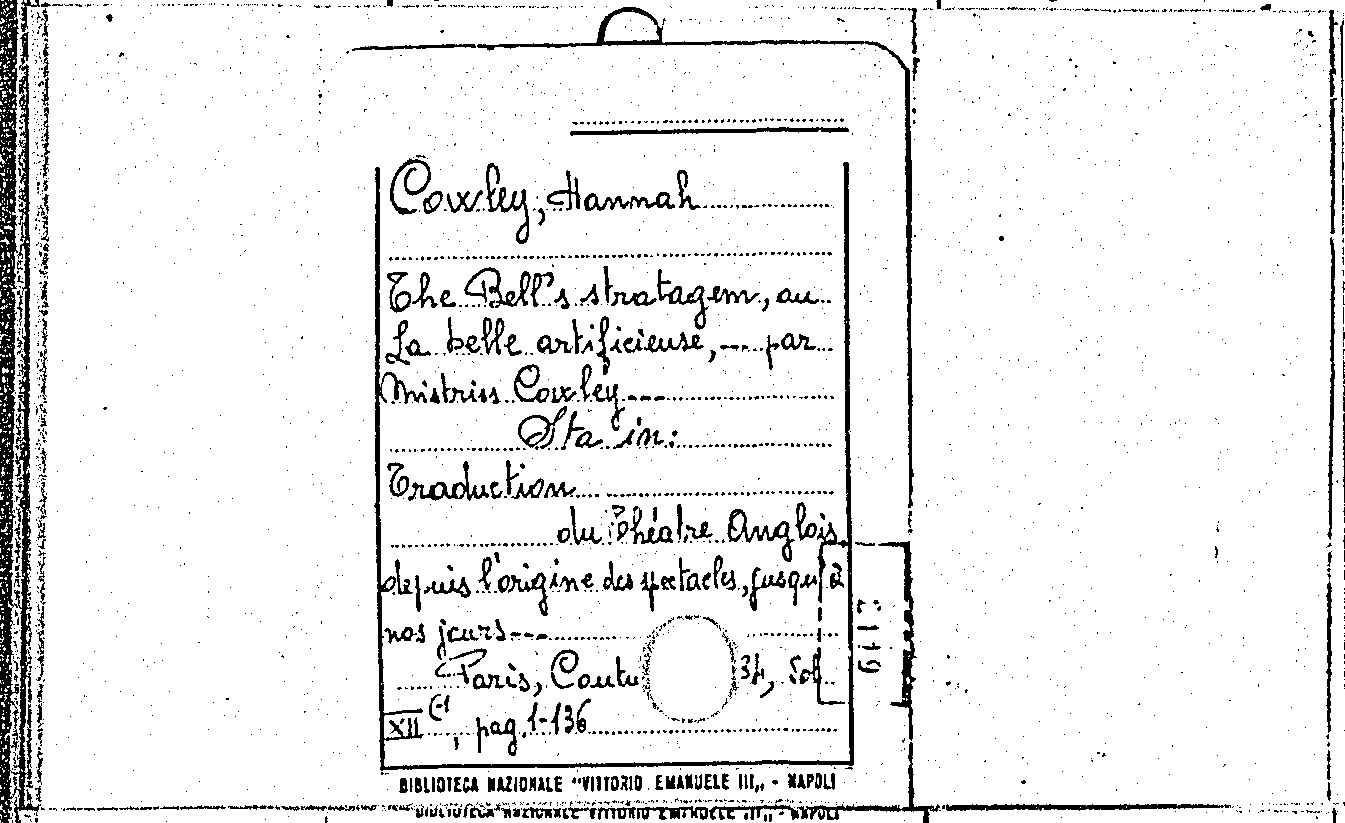 Cowley, Hannah
The Bell's stratagem, ou
La belle artificieuse, --- par
Mistriss Cowley ---
Sta in:
Traduction
du Théatre Anglois
depuis l'origine des spectacles, jusqu'à
nos jours ---
Paris, Coutu 
XII (-1, pag. 1-136
BIBLIOTECA NAZIONALE "VITTORIO EMANUELE III„ - NAPOLI
BIBLIOTECA NAZIONALE VITTORIO EMANUELE III„ - NAPOLI